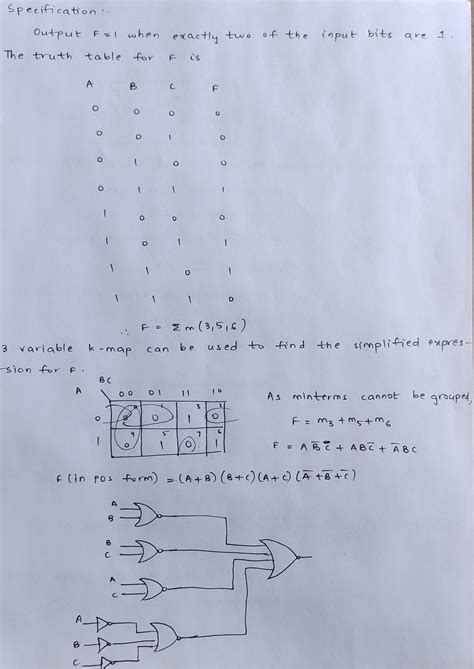 Specification :-
Output F=1 when exactly two of the input bits are 1.
The truth table for F is
A B C F
0 0 0 0
0 0 1 0
0 1 0 0
0 1 1 1
1 0 0 0
1 0 1 1
1 1 0 1
1 1 1 0
∴ F = Σm (3,5,6)
3 variable k-map can be used to find the simplified expres-
-sion for F.
BC
A 00 01 11 10
0 0 0 1 3 1 0
1 0 4 1 5 0 7 1 6
As minterms cannot be grouped,
F = m₃ + m₅ + m₆
F = A B̅ C̅ + ABC̅ + A̅BC
F (in pos form) = (A+B) (B+C) (A+C) (A̅ + B̅ + C̅)
A
B
B
C
A
C
A
B
C